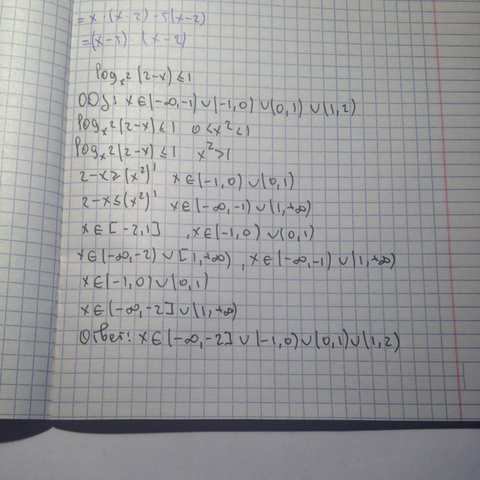 =x·(x-2)-5(x-2)
=(x-5) (x-2)
log x² (2-x) ≤ 1
ОДЗ: x∈(-∞,-1)∪(-1,0)∪(0,1)∪(1,2)
log x² (2-x) ≤ 1 0<x²<1
log x² (2-x) ≤ 1 x²>1
2-x≥(x²)¹ x∈(-1,0)∪(0,1)
2-x≤(x²)¹ x∈(-∞,-1)∪(1,+∞)
x∈[-2,1] , x∈(-1,0)∪(0,1)
x∈(-∞,-2)∪[1,+∞), x∈(-∞,-1)∪(1,+∞)
x∈(-1,0)∪(0,1)
x∈(-∞,-2]∪(1,+∞)
Ответ: x∈(-∞,-2]∪(-1,0)∪(0,1)∪(1,2)